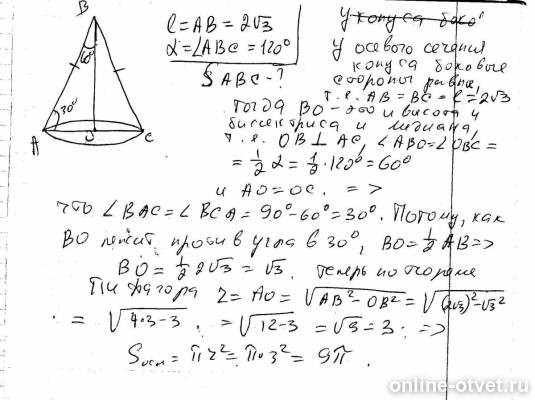 B
60°
30°
A
O
C
l = AB = 2√3
α = ∠ABC = 120°
S ABC - ?
У конуса боко
У осевого сечения
конуса боковые
стороны равны,
т.е. AB = BC = l = 2√3
Тогда BO - это и высота и
биссектриса и медиана,
т.е. OB ⊥ AC, ∠ABO = ∠OBC =
= 1/2 α = 1/2 · 120° = 60°
и AO = OC. =>
что ∠BAC = ∠BCA = 90° - 60° = 30°. Потому, как
BO лежит против угла в 30°, BO = 1/2 AB =>
BO = 1/2 2√3 = √3. Теперь по теореме
Пифагора r = AO = √AB² - OB² = √(2√3)² - √3²
= √4·3-3 = √12-3 = √3 = 3. =>
Sосн = πr² = π·3² = 9π.
online-otvet.ru